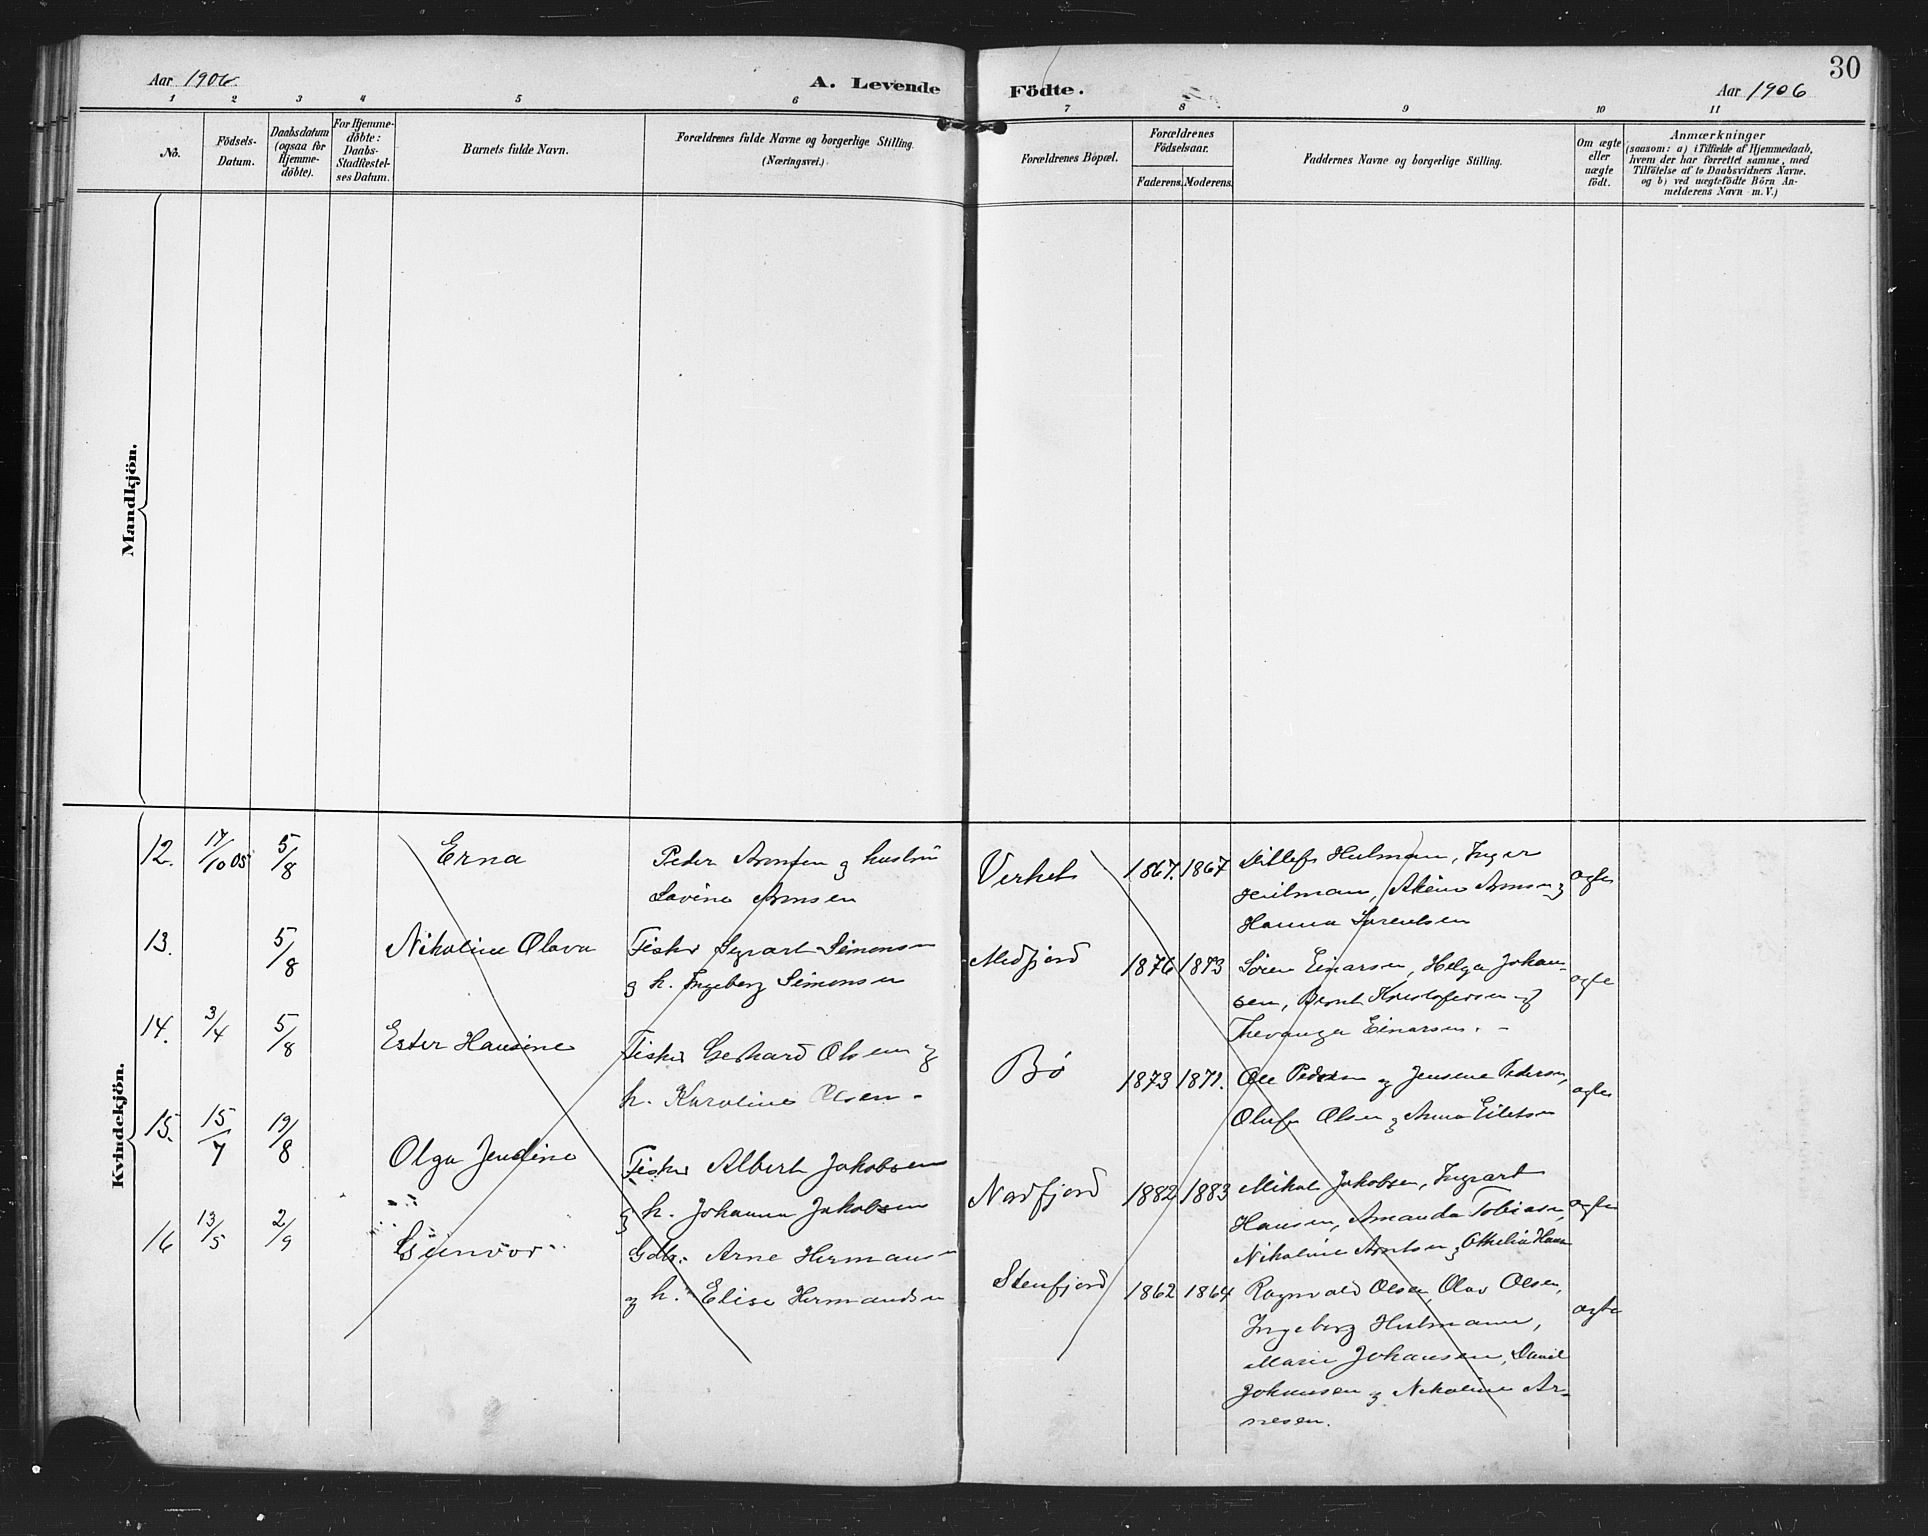 30
Aar 1906.
A. Levende Födte.
Aar 1906
1 2 3 4 5 6 7 8 9 10 11
No.
Födsels-Datum.
Daabsdatum (ogsaa for Hjemme-döbte).
For Hjemme-döbte: Daabs-Stadfestel-ses Datum.
Barnets fulde Navn.
Forældrenes fulde Navne og borgerlige Stilling.
(Næringsvei.)
Forældrenes Bopæl.
Forældrenes Födselsaar.
Faderens. Moderens.
Faddernes Navne og borgerlige Stilling.
Om ægte eller nægte födt.
Anmærkninger
(saasom: a) i Tilfælde af Hjemmedaab,
hvem der har forrettet samme, med
Tilföielse af to Daabsvidners Navne.
og b) ved uægtefödte Börn An-
melderens Navn m. V.)
Mandkjön.
Kvindekjön.
12. 17/10 05 5/8 Erna Peder og hustru
Verket 1867. 1867 Inger ægte
Hanna Sørentsen
13. 5/8 Nikoline Olava Fisker Simonsen
g h. Ingeborg Simonsen
Medfjord 1876 1873 Søren Einarsen, Helga Johan-
sen, Bernt Kristofersen og
Einarsen. ægte
14. 3/4 5/8 Ester Hansine Fisker Gerhard Olsen og
h. Karoline Olsen.
Bø 1873 1871. Ole Pedersen og Jensine Pedersen,
Oluf Olsen og Anna ægte
15. 15/7 19/8 Olga Jendine Fisker Albert Jakobsen
g h. Johanna Jakobsen
Nordfjord 1882 1883 Mikal Jakobsen, Ingvart
Hansen, Amanda Tobiasen,
Nikoline Arntsen g ægte
16 13/5 2/9 Gunvor Gdbr. Arne Hermansen
og h. Elise Hermandsen
Stenfjord 1862 1864 Ragnvald Olsen, Olav Olsen,
Ingeborg
Marie Johansen, Daniel
Johansen g Nikoline Ar-
nesen. ægte